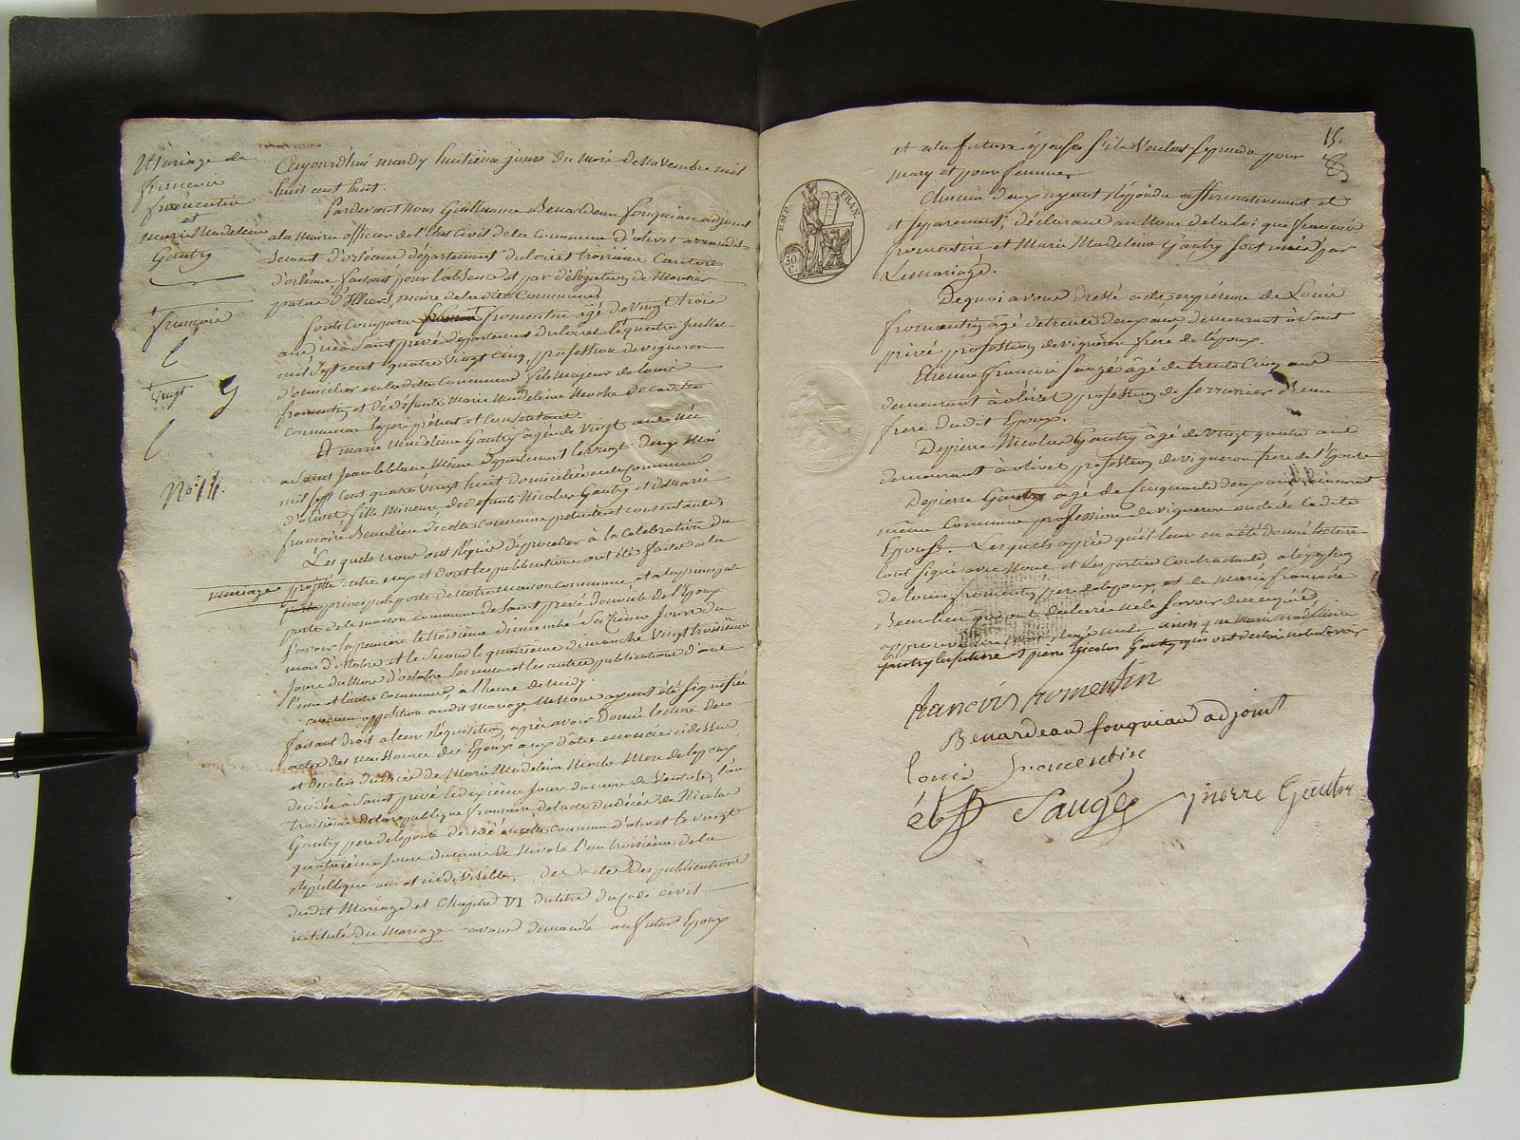 Mariage de
francois
fromentin
et
Marie Madeleine
Gautry
francois
vingt
No: 14.
Aujourd'hui mardy huitieme jours du mois de Novembre mil
huit cent huit.
Pardevant Nous Guillaume Benardeau fouquiau adjoint
a la Mairie officier de l'Etat Civil de la Commune d'olivet arrondis-
sement d'orléans département du loiret troisieme Canton
d'orléans faisant pour l'absence et par délégation de Monsieur
maire de la dite Commune
Sont Comparu fromentin agé de vingt trois
ans né à Saint privé département du loiret le quatre Juillet
mil sept cent quatre vingt cinq, profession de vigneron
domicilié en la ditte Commune fils majeur de louis
fromentin et de défunte Marie Madeleine de la dite
commune le pere présent et Consentant.
Et marie Madeleine Gautry agée de vingt ans née
a Saint Jean le blanc Même département le vingt deux Mai
mil sept cent quatre vingt huit domiciliée en la Commune
d'olivet fille Mineure de defunt Nicolas Gautry et de Marie
francoise Beaulieu de cette Commune présente et consentante,
Les quels nous ont requis de procéder à la Célébration du
mariage projetté entre eux et dont les publications ont été faites a la
principale porte de Notre Maison commune, et a la principale
porte de la maison commune de Saint privé domicile de l'Epoux
savoir la premiere le troisieme dimanche Seizieme Jours du
mois d'octobre et le Second le quatrieme dimanche vingt troisieme
Jours du Mois d'octobre
l'une et l'autre commune, a l'heure de midy.
aucune opposition audit Mariage Ne Nous ayant été Signifiée
faisant droit a leur réquisition, après avoir donné lecture des
actes des Naissances des Epoux aux d'attes énoncées ci dessus
et de celui du décès de Marie Madeleine Mere de l'epoux,
décédée a Saint privé le dixieme Jours du mois de l'an
troisieme de la république francaise, de l'acte du décès de Nicolas
Gautry pere de l'epouse décédé en cette commune d'olivet le vingt
quatrieme Jours du mois de Nivose l'an troisieme de la
république une et indivisible, des actes des publications
dudit Mariage et Chapitre VI du titre du Code Civil
intitulé du Mariage avons demandé au futur Epoux
15.
et a la future épouse s'ils veulent se prendre pour
mary et pour femme.
EMP. FRAN.
50
C.
Chacun d'eux ayant répondu affirmativement et
et séparement, déclarons au Nom de la loi que francois
fromentin et Marie Madeleine Gautry sont unis par
Le mariage.
De quoi avons dressé acte en présence de Louis
fromentin agé de trente deux ans demeurant à Saint
privé profession de vigneron frere de l'époux.
Etienne francois Saugé âgé de trente Cinq ans
demeurant à olivet profession de serrurier Beau
frere dudit Epoux.
De pierre Nicolas Gautry âgé de vingt quatre ans
demeurant à olivet profession de vigneron frere de l'Epouse
De pierre Gautry agé de Cinquante deux ans demeurant
même Commune profession de vigneron oncle de la dite
Epouse. Lesquels après qu'il leur en a été donné lecture
l'ont signé avec Nous et les parties Contractantes a l'exception
de louis fromentin pere de l'epoux et de Marie francoise
Beaulieu qui ont déclarés Ne le savoir de ce enquis
approuvé ainsi que marie madeleine
gautry la future et pierre Nicolas Gautry qui ont déclaré ne le savoir
francois fromentin
Benardeau fouquiau adjoint
louis fromentin
Saugé pierre Gautry